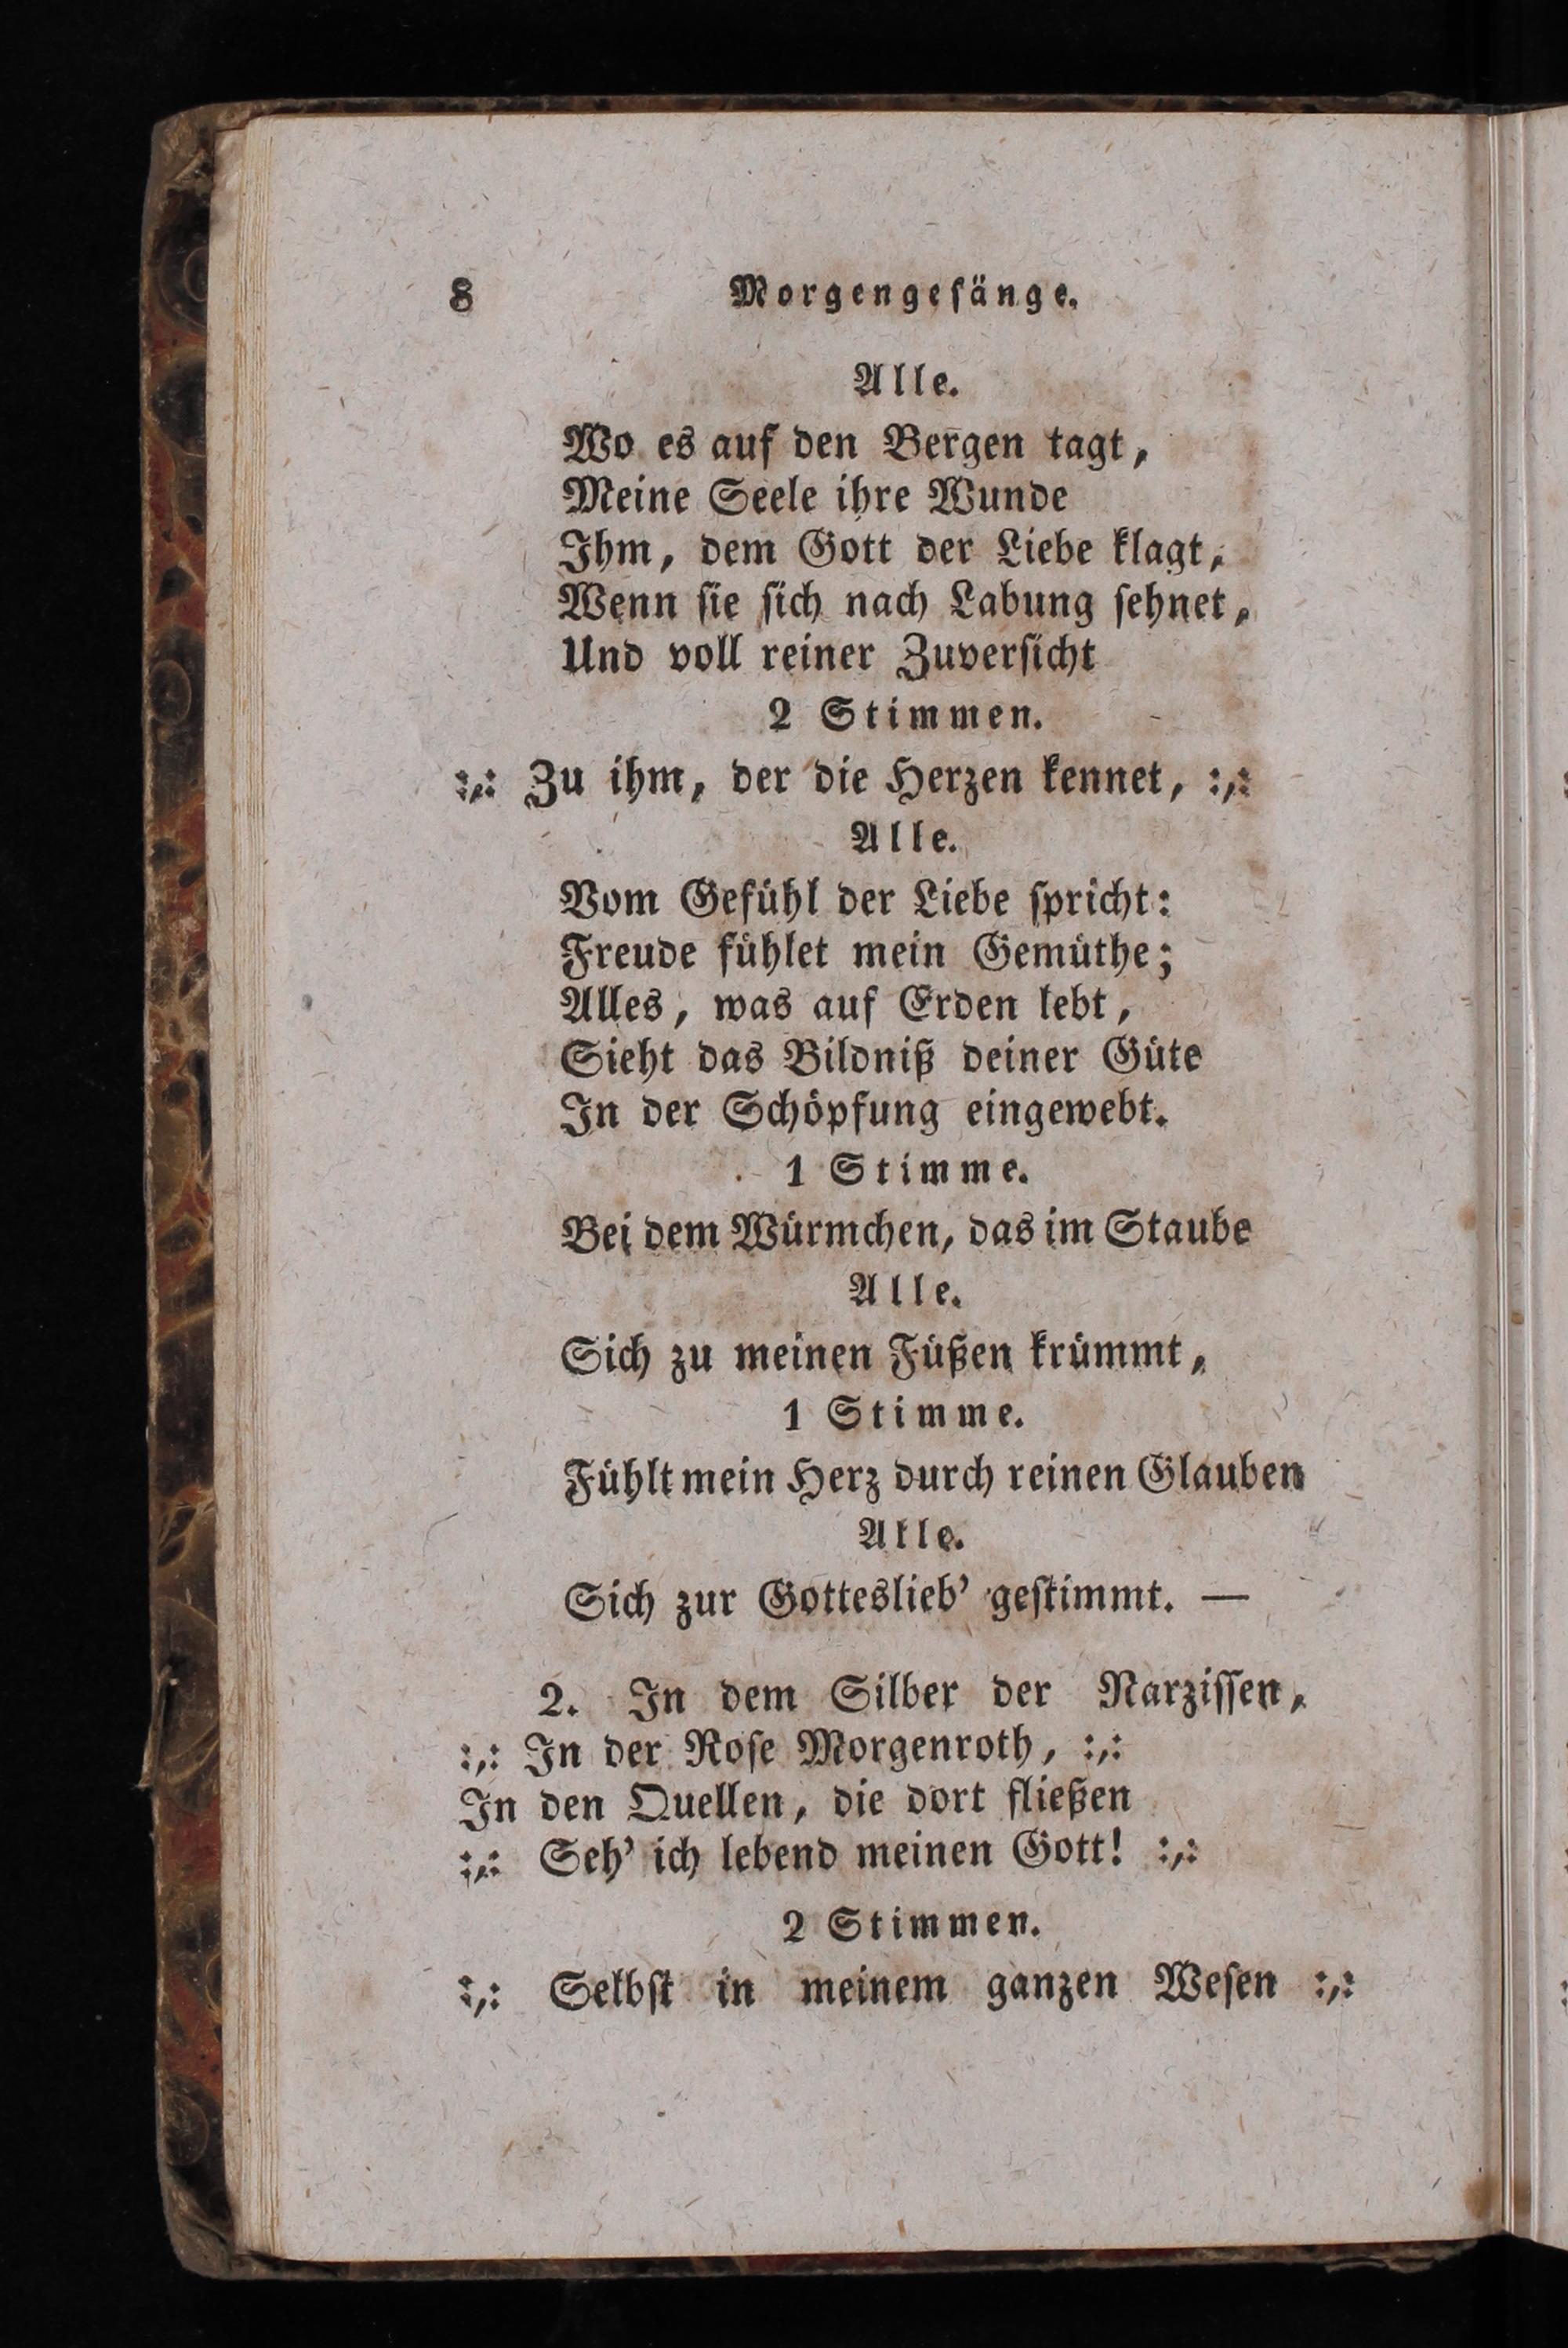 8 Morgengeſänge.
Alle.
Wo es auf den Bergen tagt,
Meine Seele ihre Wunde
Ihm, dem Gott der Liebe klagt,
Wenn ſie ſich nach Labung ſehnet,
Und voll reiner Zuverſicht
2 Stimmen.
:,: Zu ihm, der die Herzen kennet, :,:
Alle.
Vom Gefühl der Liebe ſpricht:
Freude fühlet mein Gemüthe;
Alles, was auf Erden lebt,
Sieht das Bildniß deiner Güte
In der Schöpfung eingewebt.
1 Stimme.
Bei dem Würmchen, das im Staube
Alle.
Sich zu meinen Füßen krümmt,
1 Stimme.
Fühlt mein Herz durch reinen Glauben
Alle.
Sich zur Gotteslieb' geſtimmt. —
2. In dem Silber der Narziſſen,
:,: In der Roſe Morgenroth, :,:
In den Quellen, die dort fließen
:,: Seh' ich lebend meinen Gott! :,:
2 Stimmen.
:,: Selbſt in meinem ganzen Weſen :,: